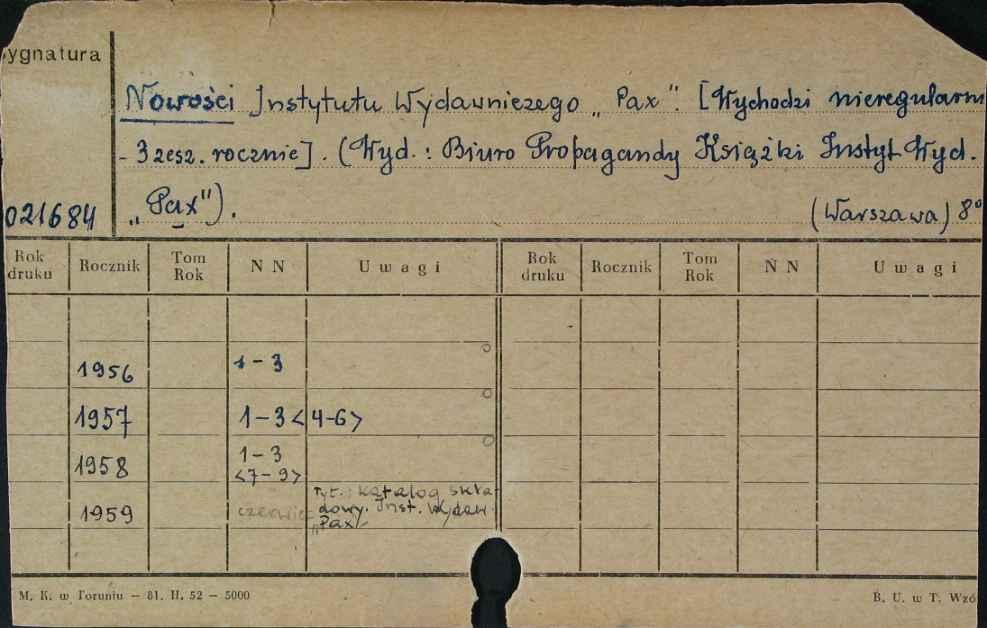 ygnatura
Nowości Instytutu Wydawniczego „Pax". [Wychodzi nieregularni
- 3 zesz. rocznie]. (Wyd.: Biuro Propagandy Książki Instyt. Wyd.
„Pax").
021684
(Warszawa) 8°
Rok druku Rocznik Tom Rok N N Uwagi Rok druku Rocznik Tom Rok N N Uwagi
1956 1-3
1957 1-3 <4-6>
1958 1-3
<7-9>
1959 czerwiec Tyt.: Katalog skła-
dowy. Inst. Wydaw.
„Pax"
M. K. w Toruniu — 81. II. 52 — 5000
B. U. w T. Wzó